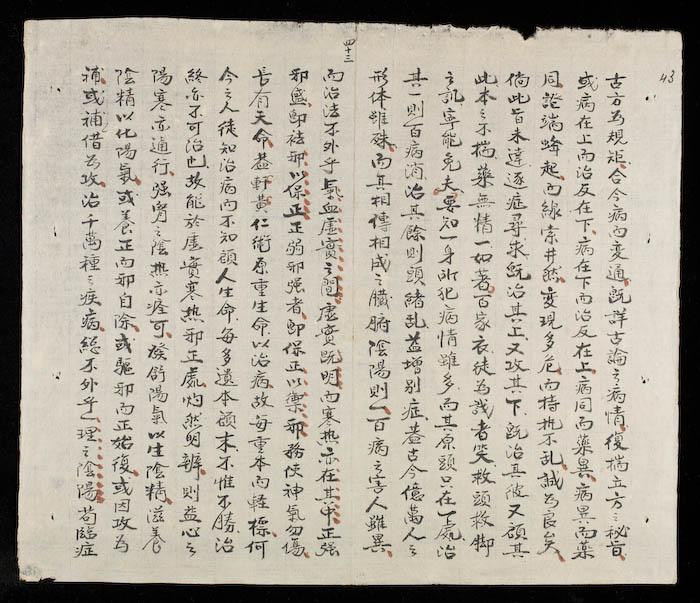 43
古方為規矩合今病而變通既詳古論之病情復揣立方之秘旨
或病在上而治反在下病在下而治反在上病同而藥異病異而藥
同證端蜂起而線索井然變現多危而持執不乱誠為良矣
倘此旨未達逐症尋求既治其上又攻其下既治其彼又顧其
此本之不揣藥無精一如著百家衣徒為識者笑救頭救脚
之訊寧能免夫要知一身所犯病情雖多而其原頭只在一處治
其一則百病消治其餘則頭緒乱益增別症蓋古今億萬人之
形体雖殊而其相傳相成之臟腑陰陽則一百病之害人雖異
四十三
而治法不外乎氣血虛實之間虛實既明而寒热亦在其中正强
邪盛卽祛邪以保正正弱邪强者卽保正以禦邪務使神氣勿傷
長有天命蓋軒黃仁術原重生命以治病故每重本而輕標何
今之人徒知治病而不知顧人生命每多遺本顧末不惟不勝治
終亦不可治也故能於虛實寒热邪正處灼然明辨則益心之
陽寒亦通行强腎之陰热亦痊可癸舒陽氣以生陰精滋養
陰精以化陽氣或養正而邪自除或驅邪而正始復或因攻為
補或補借為攻治千萬種之疾病總不外乎一理之陰陽苟臨症